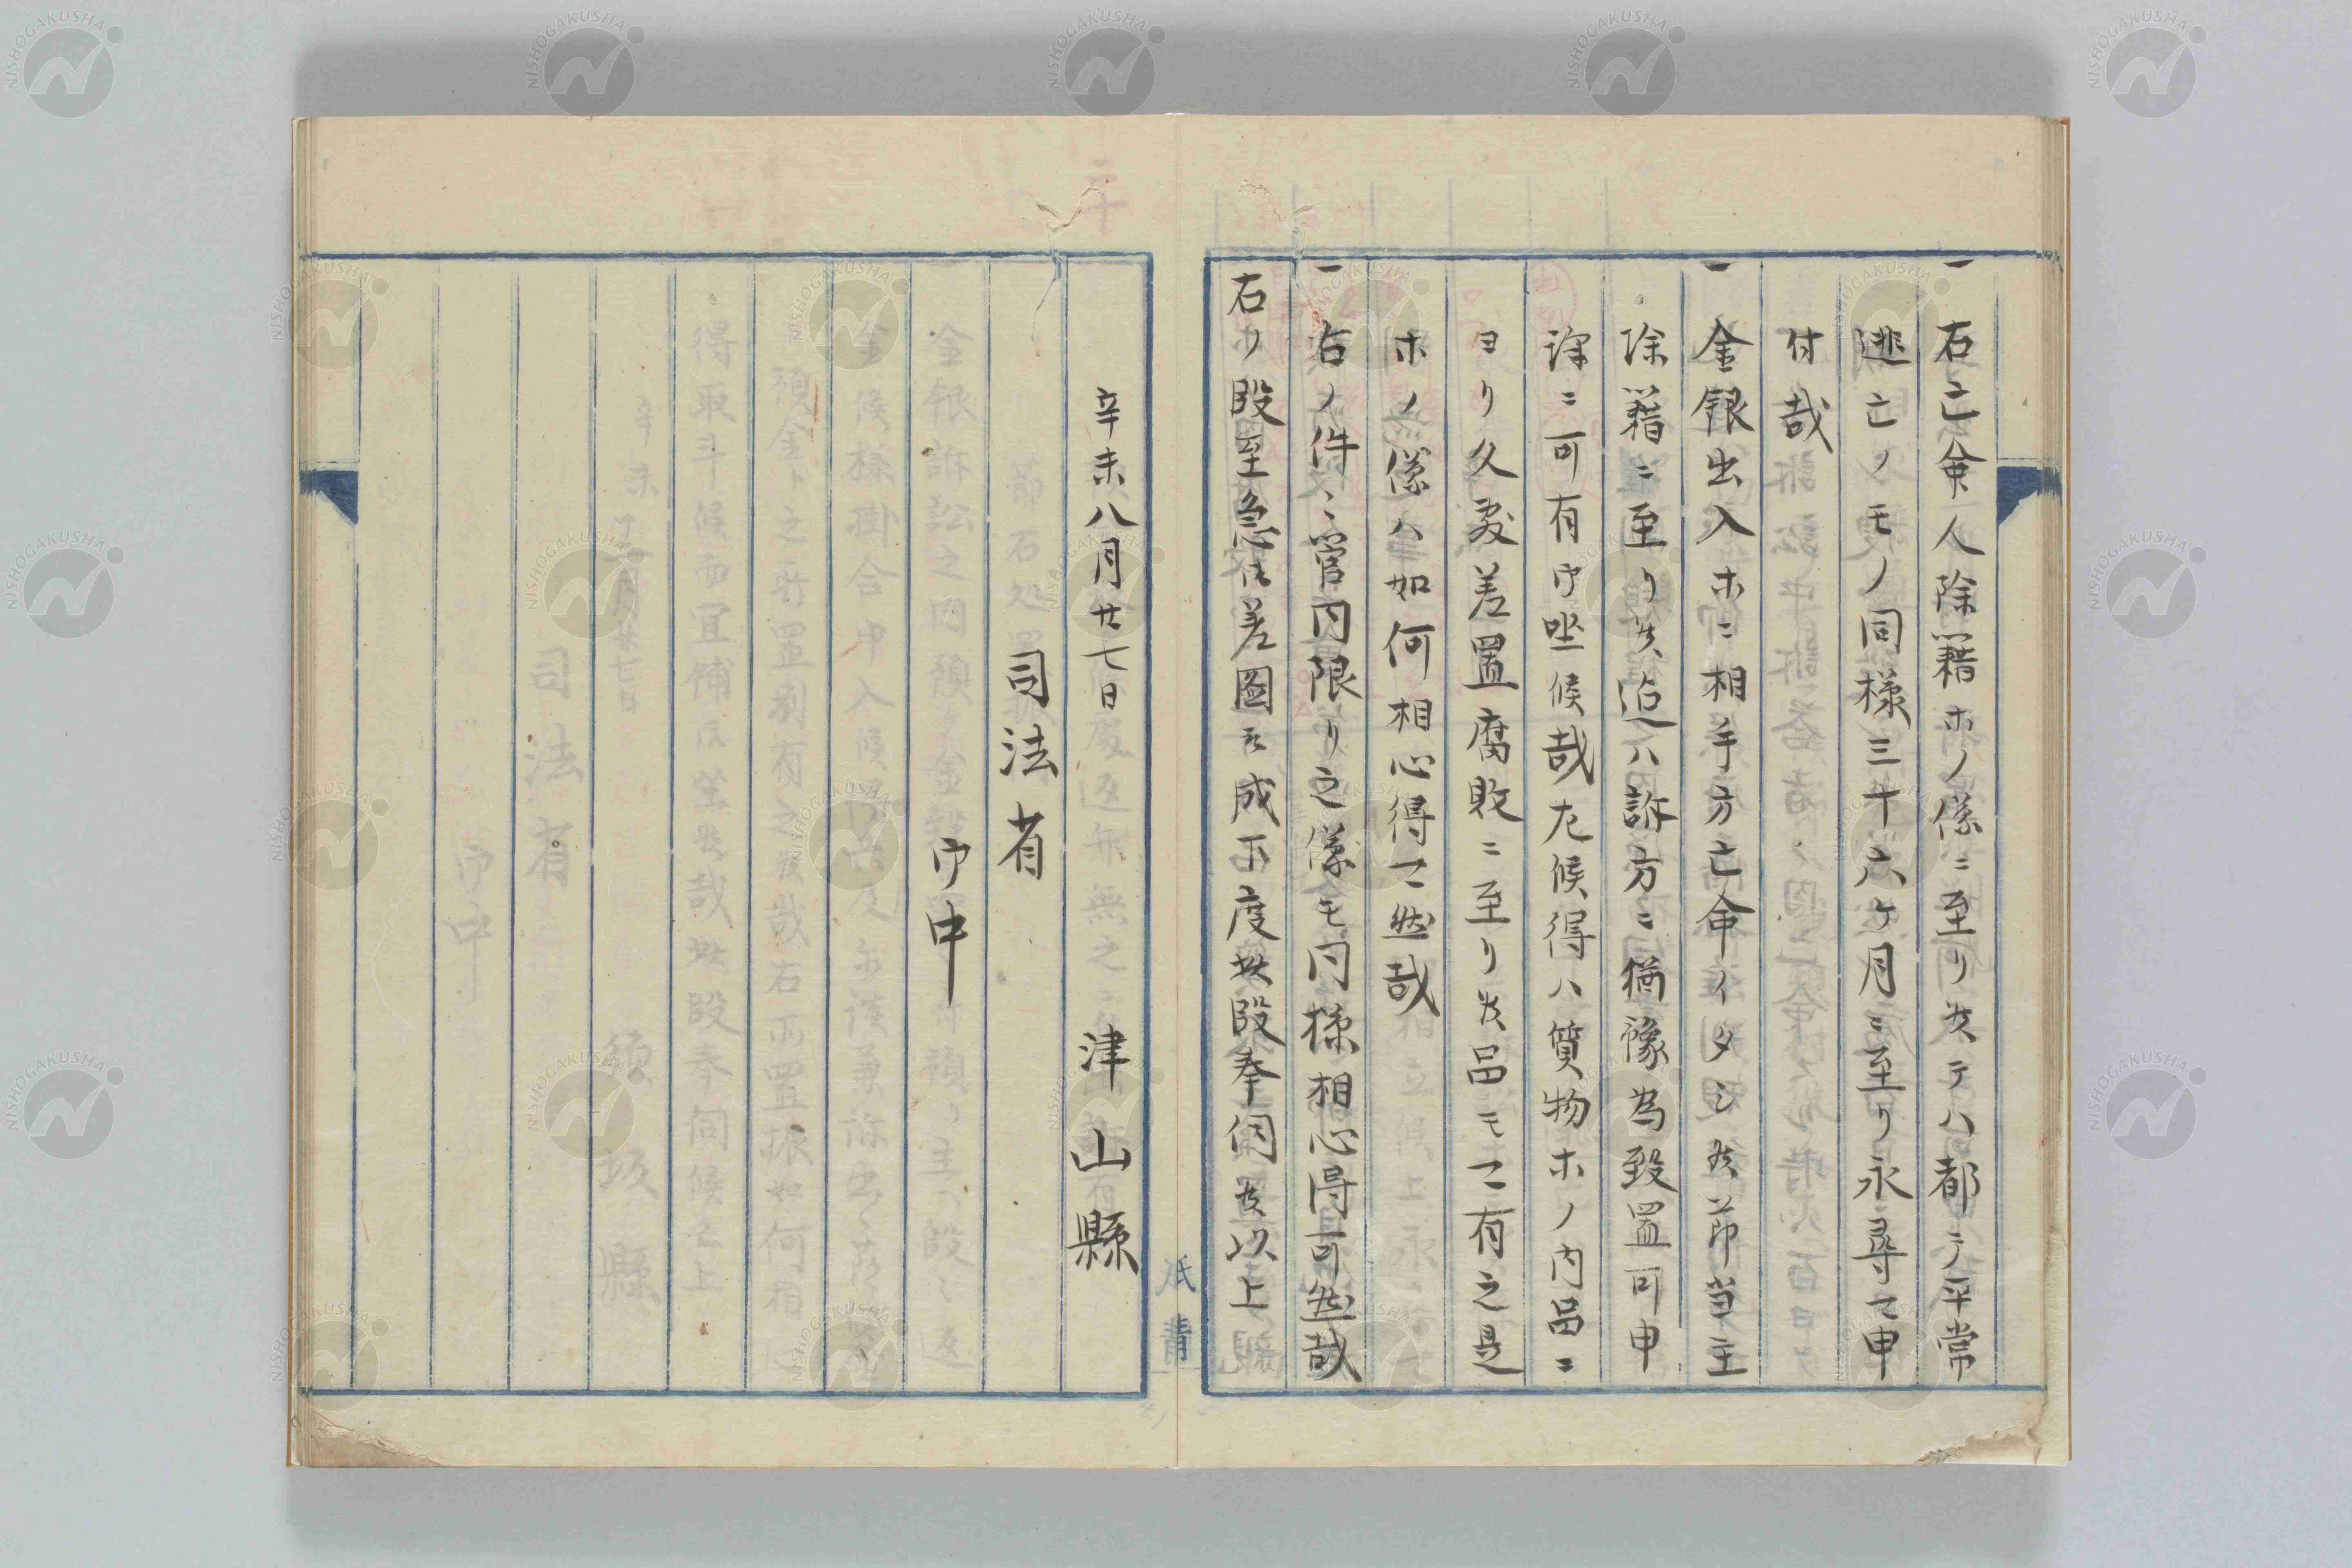 一 右亡命人除籍ホノ儀ニ至リ候テハ都テ平常
逃亡ノモノ同様三十六ケ月ニ至リ永尋可申
付哉
一 金銀出入ホニ相手方亡命イタシ候節当主
除籍ニ至リ候迠ハ訴方ニ猶豫為致置可申
譯ニ可有御坐候哉左候得ハ質物ホノ内品ニ
ヨリ久敷差置腐敗ニ至リ候品モ可有之是
ホノ儀ハ如何相心得可然哉
一 右ノ件ニ管内限リ之儀モ同様相心得可然哉
右ノ段至急御差圖被成下度此段奉伺候以上
津山縣
辛未八月廿七日
司法省
御中
NISHOGAKUSHA